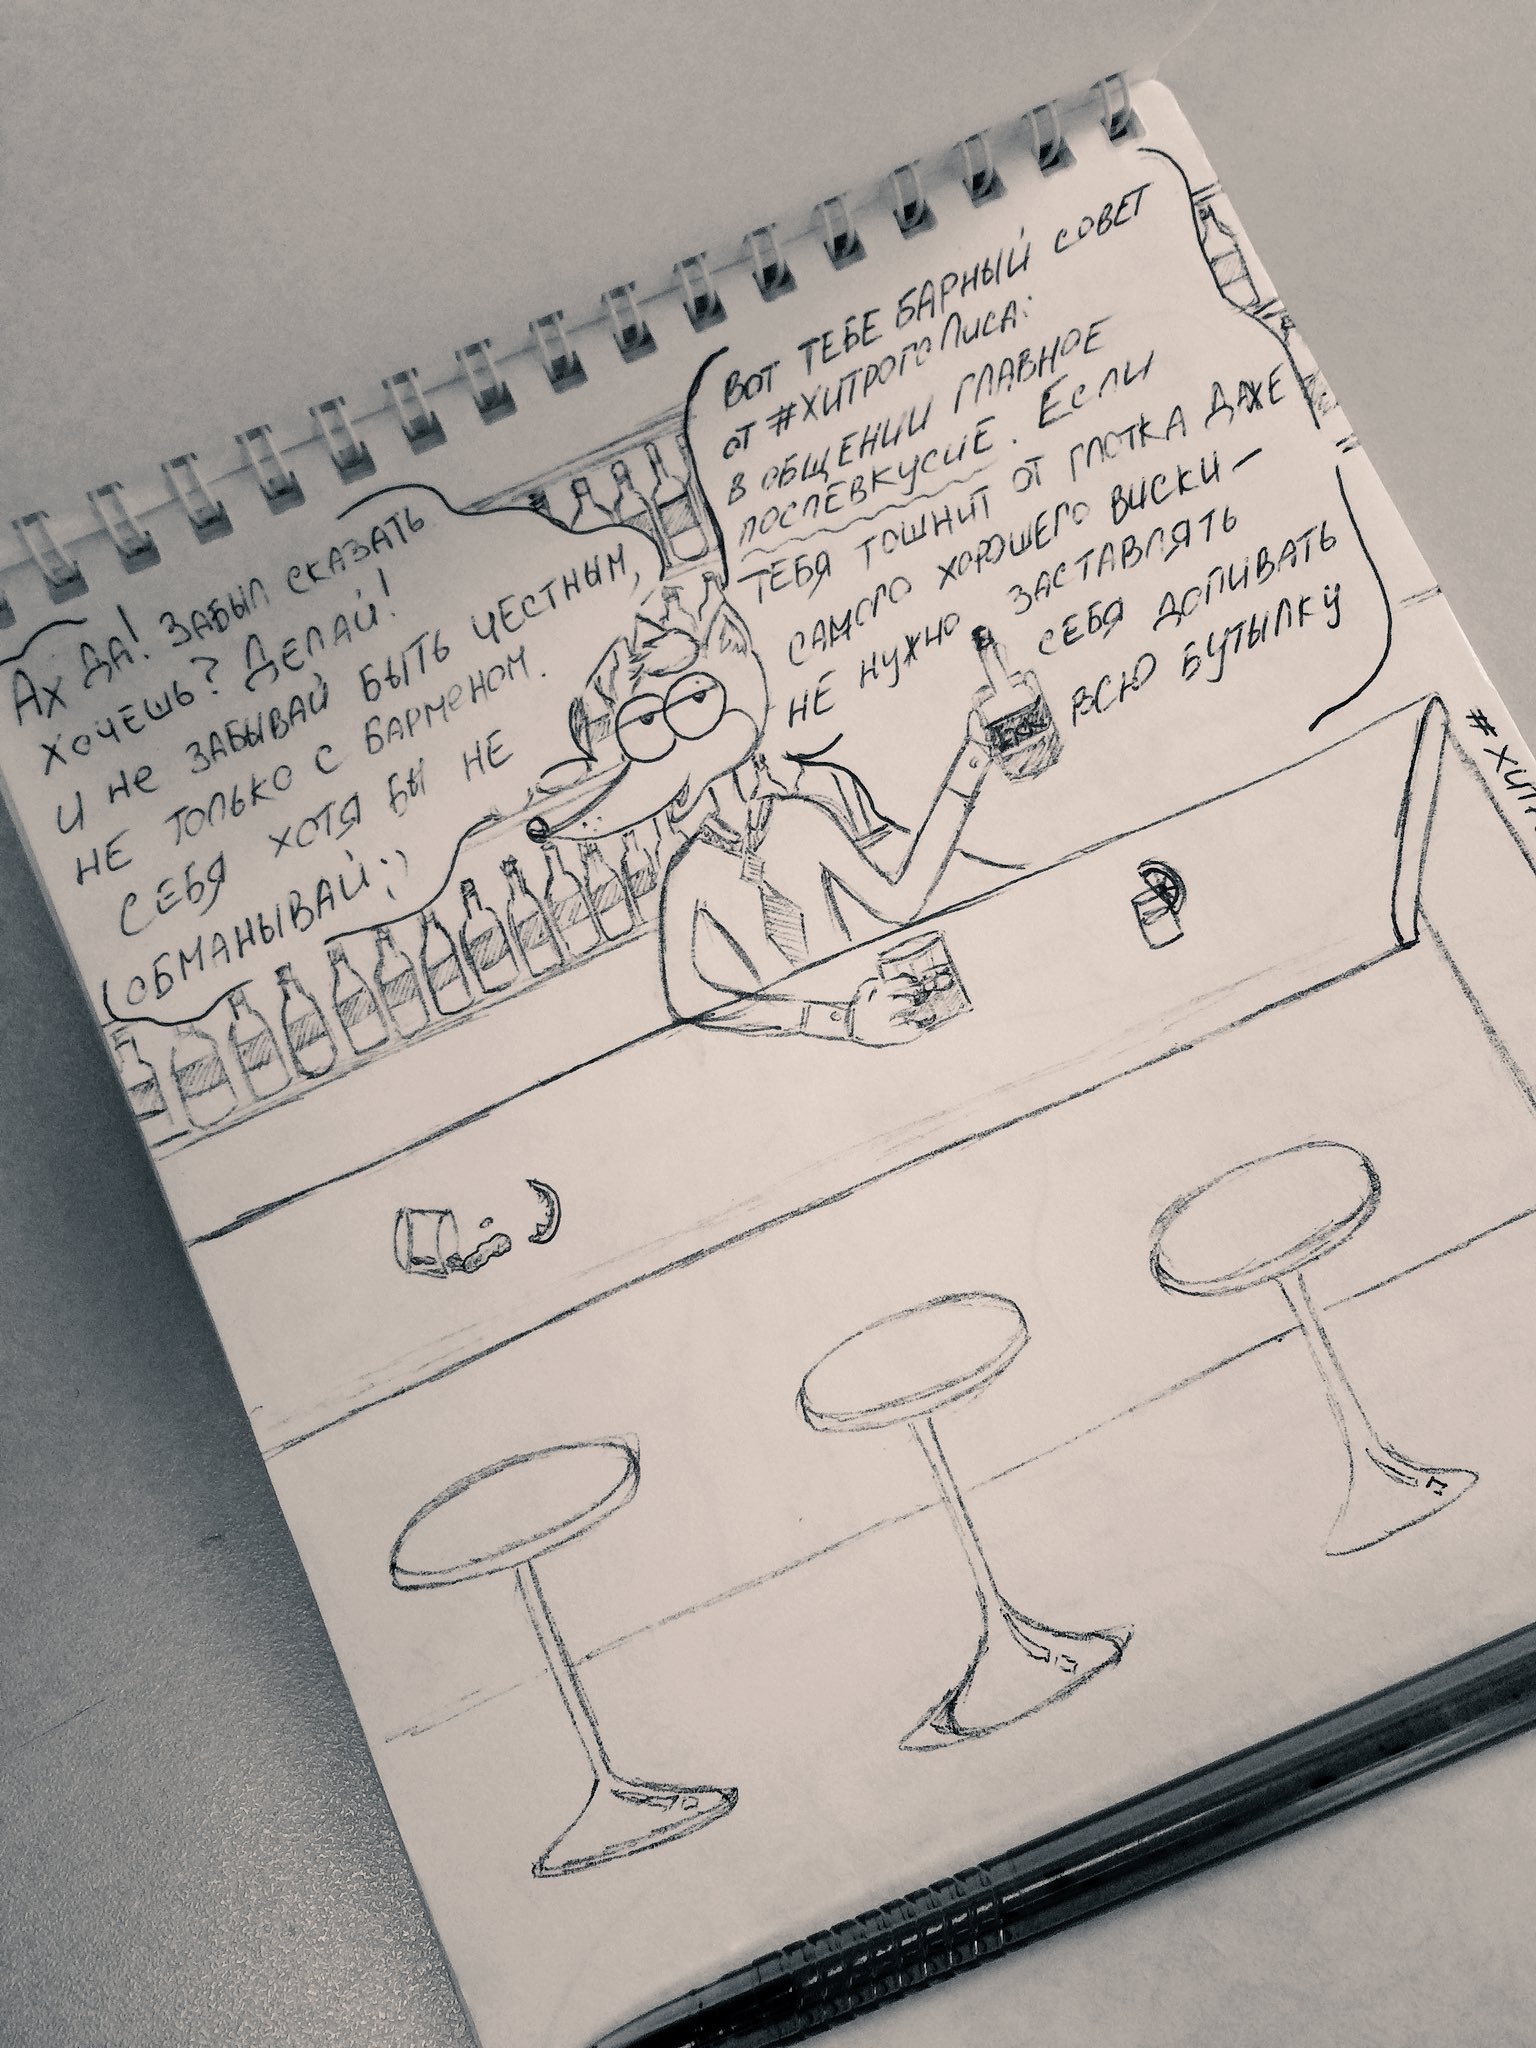 Вот тебе барный совет
от #ХитрогоЛиса:
в общении главное
послевкусие. Если
тебя тошнит от глотка даже
самого хорошего виски –
не нужно заставлять
себя допивать
всю бутылку
Ах да! Забыл сказать
хочешь? Делай!
и не забывай быть честным,
не только с барменом.
Себя хотя бы не
обманывай;)
#ХИТР